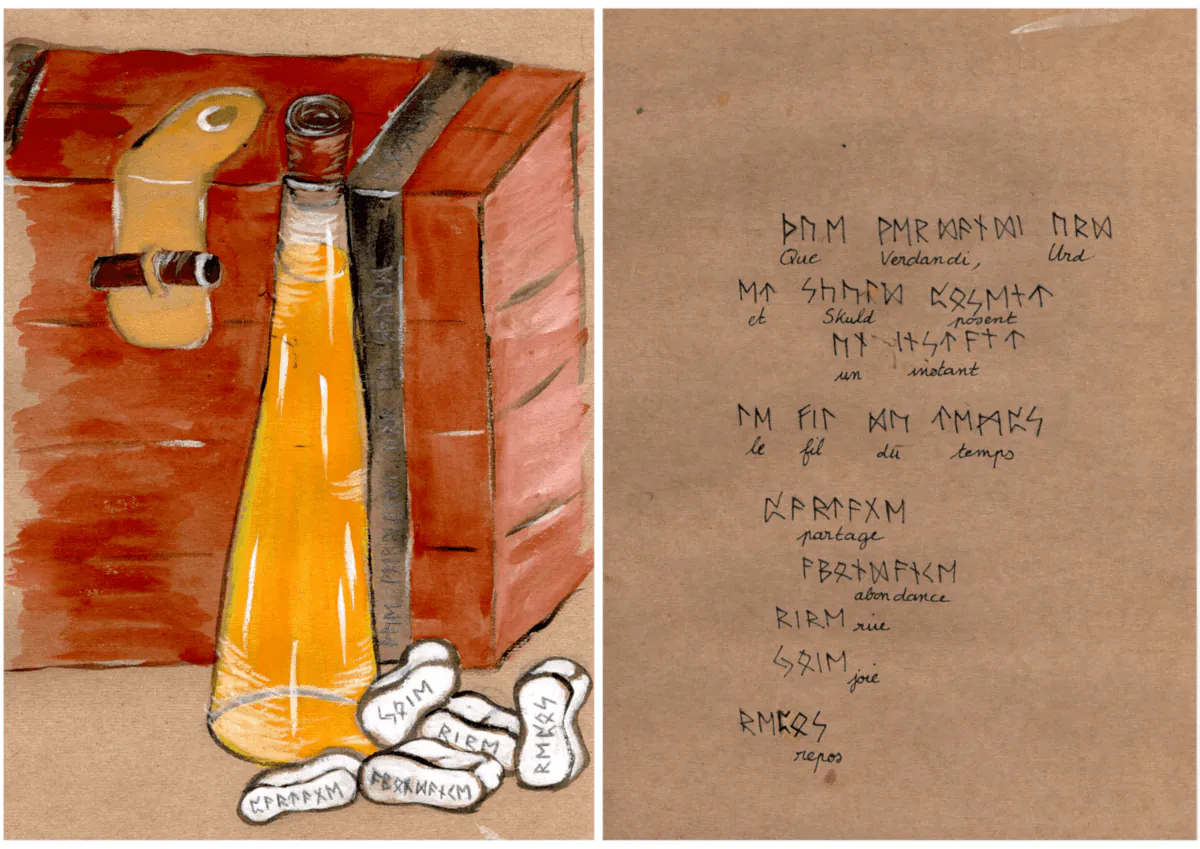 ᛃᛟᛁᛖ
ᚱᛁᚱᛖ
ᚱᛖᛈᛟᛊ
ᛈᚨᚱᛏᚨᚷᛖ
ᚨᛒᛟᚾᛞᚨᚾᚲᛖ
ᚦᚢᛖ ᚹᛖᚱᛞᚨᚾᛞᛁ ᚢᚱᛞ
Que Verdandi, Urd
ᛖᛏ ᛊᚲᚢᛚᛞ ᛈᛟᛊᛖᚾᛏ
et Skuld posent
ᚢᚾ ᛁᚾᛊᛏᚨᚾᛏ
un instant
ᛚᛖ ᚠᛁᛚ ᛞᚢ ᛏᛖᛗᛈᛊ
le fil du temps
ᛈᚨᚱᛏᚨᚷᛖ
partage
ᚨᛒᛟᚾᛞᚨᚾᚲᛖ
abondance
ᚱᛁᚱᛖ rire
ᛃᛟᛁᛖ joie
ᚱᛖᛈᛟᛊ
repos